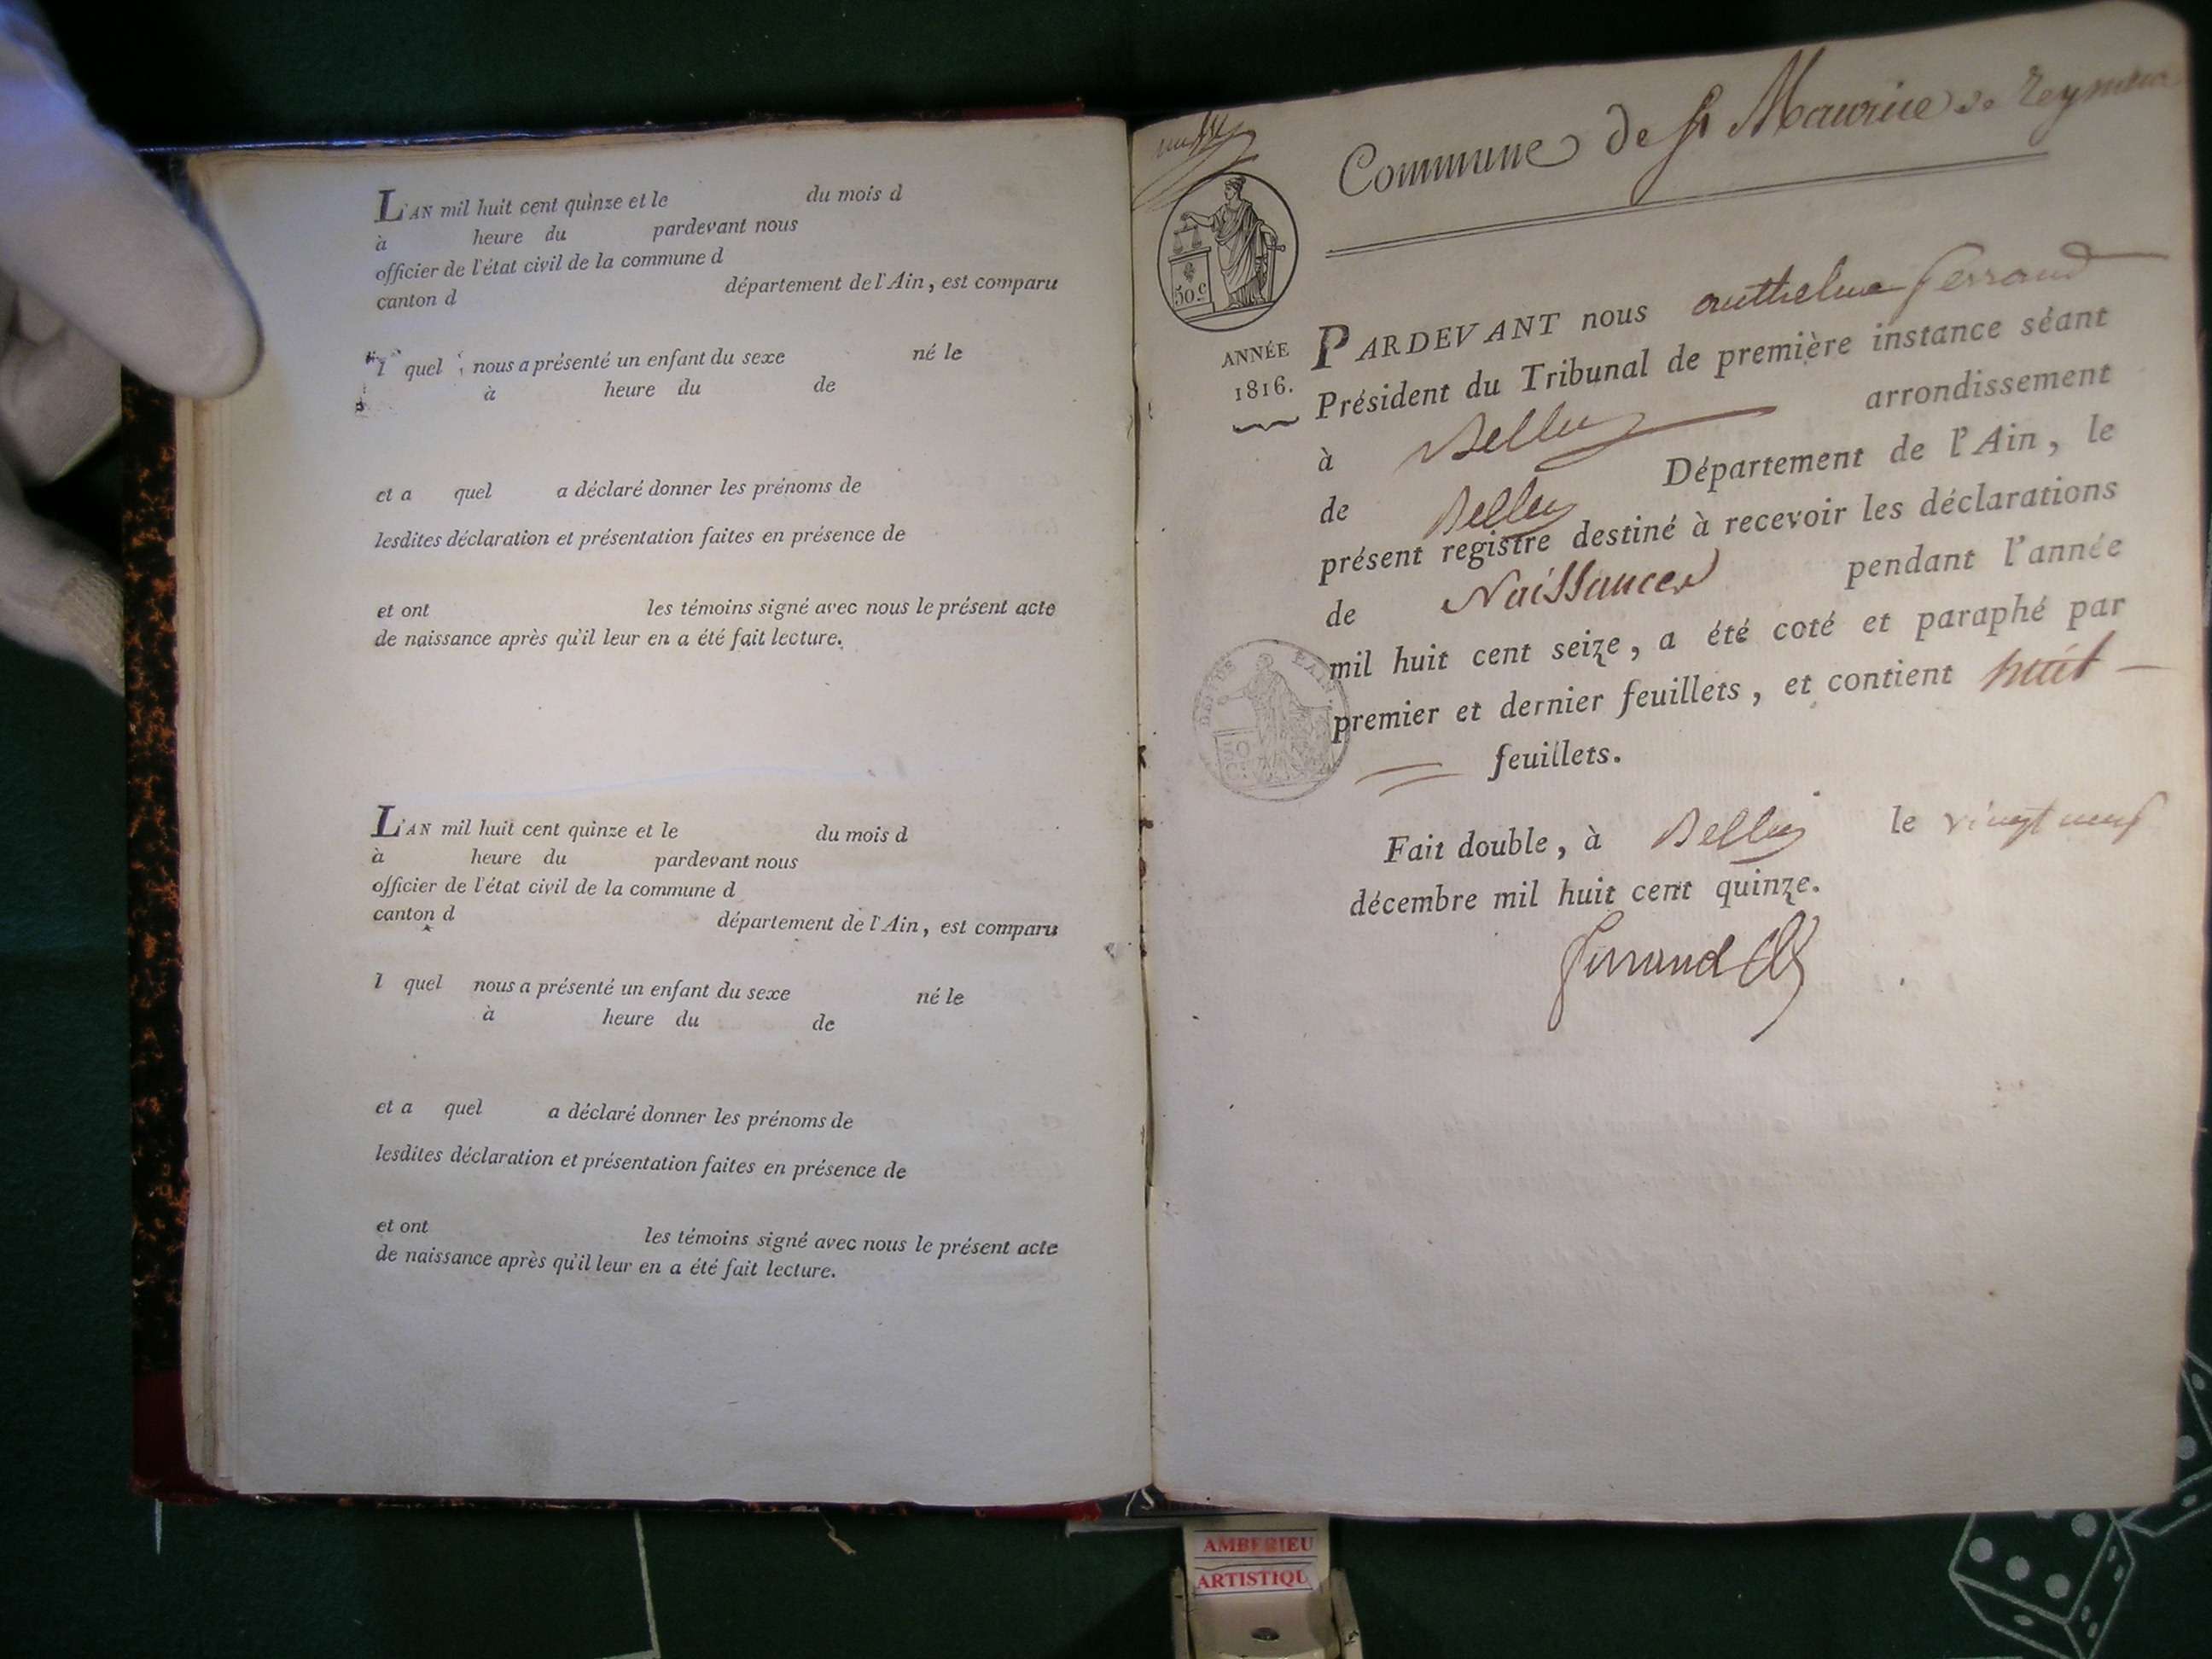 L'AN mil huit cent quinze et le du mois d
à heure du pardevant nous
officier de l'état civil de la commune d
canton d département de l'Ain, est comparu
l quel nous a présenté un enfant du sexe né le
à heure du de
et a quel a déclaré donner les prénoms de
lesdites déclaration et présentation faites en présence de
et ont les témoins signé avec nous le présent acte
de naissance après qu'il leur en a été fait lecture.
L'AN mil huit cent quinze et le du mois d
à heure du pardevant nous
officier de l'état civil de la commune d
canton d département de l'Ain, est comparu
l quel nous a présenté un enfant du sexe né le
à heure du de
et a quel a déclaré donner les prénoms de
lesdites déclaration et présentation faites en présence de
et ont les témoins signé avec nous le présent acte
de naissance après qu'il leur en a été fait lecture.
Commune de St Maurice de
50 c
ANNÉE
1816.
PARDEVANT nous anthelme ferrand
Président du Tribunal de première instance séant
à Belley arrondissement
de Belley Département de l'Ain, le
présent registre destiné à recevoir les déclarations
de Naissances pendant l'année
mil huit cent seize, a été coté et paraphé par
premier et dernier feuillets, et contient huit
feuillets.
Fait double, à Belley le vingt neuf
décembre mil huit cent quinze.
ferrand
AMBERIEU
ARTISTIQU